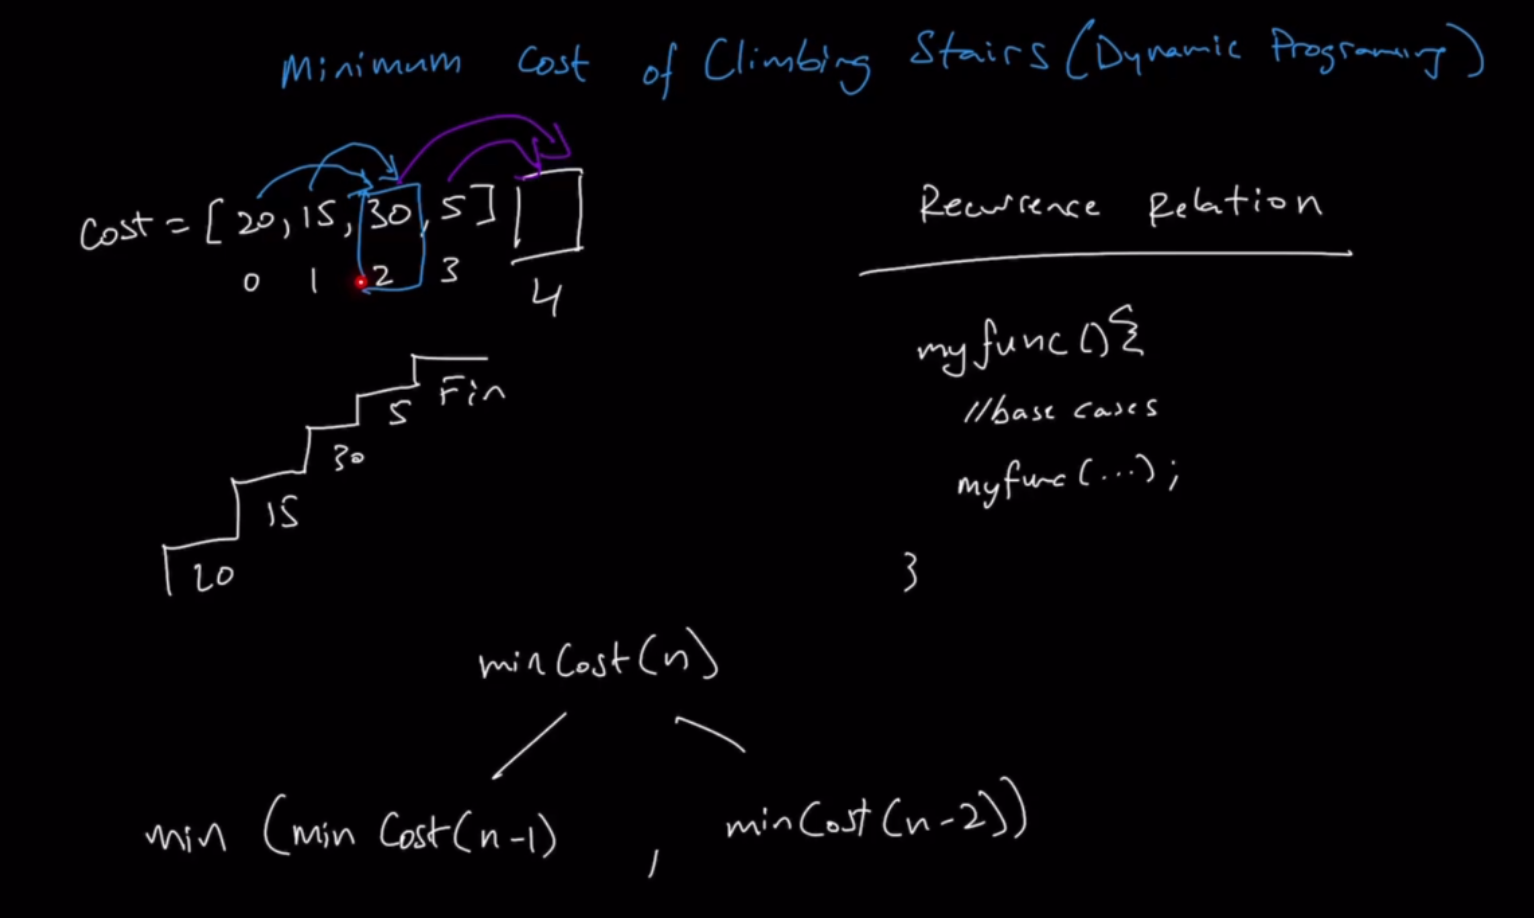 Minimum Cost of Climbing Stairs (Dynamic Programing)
Cost = [20, 15, 30, 5]
0 1 2 3 4
Fin
5
30
15
20
Recurrence Relation
myfunc(){
//base cases
myfunc(...);
}
minCost(n)
min (min Cost(n-1) , minCost(n-2))